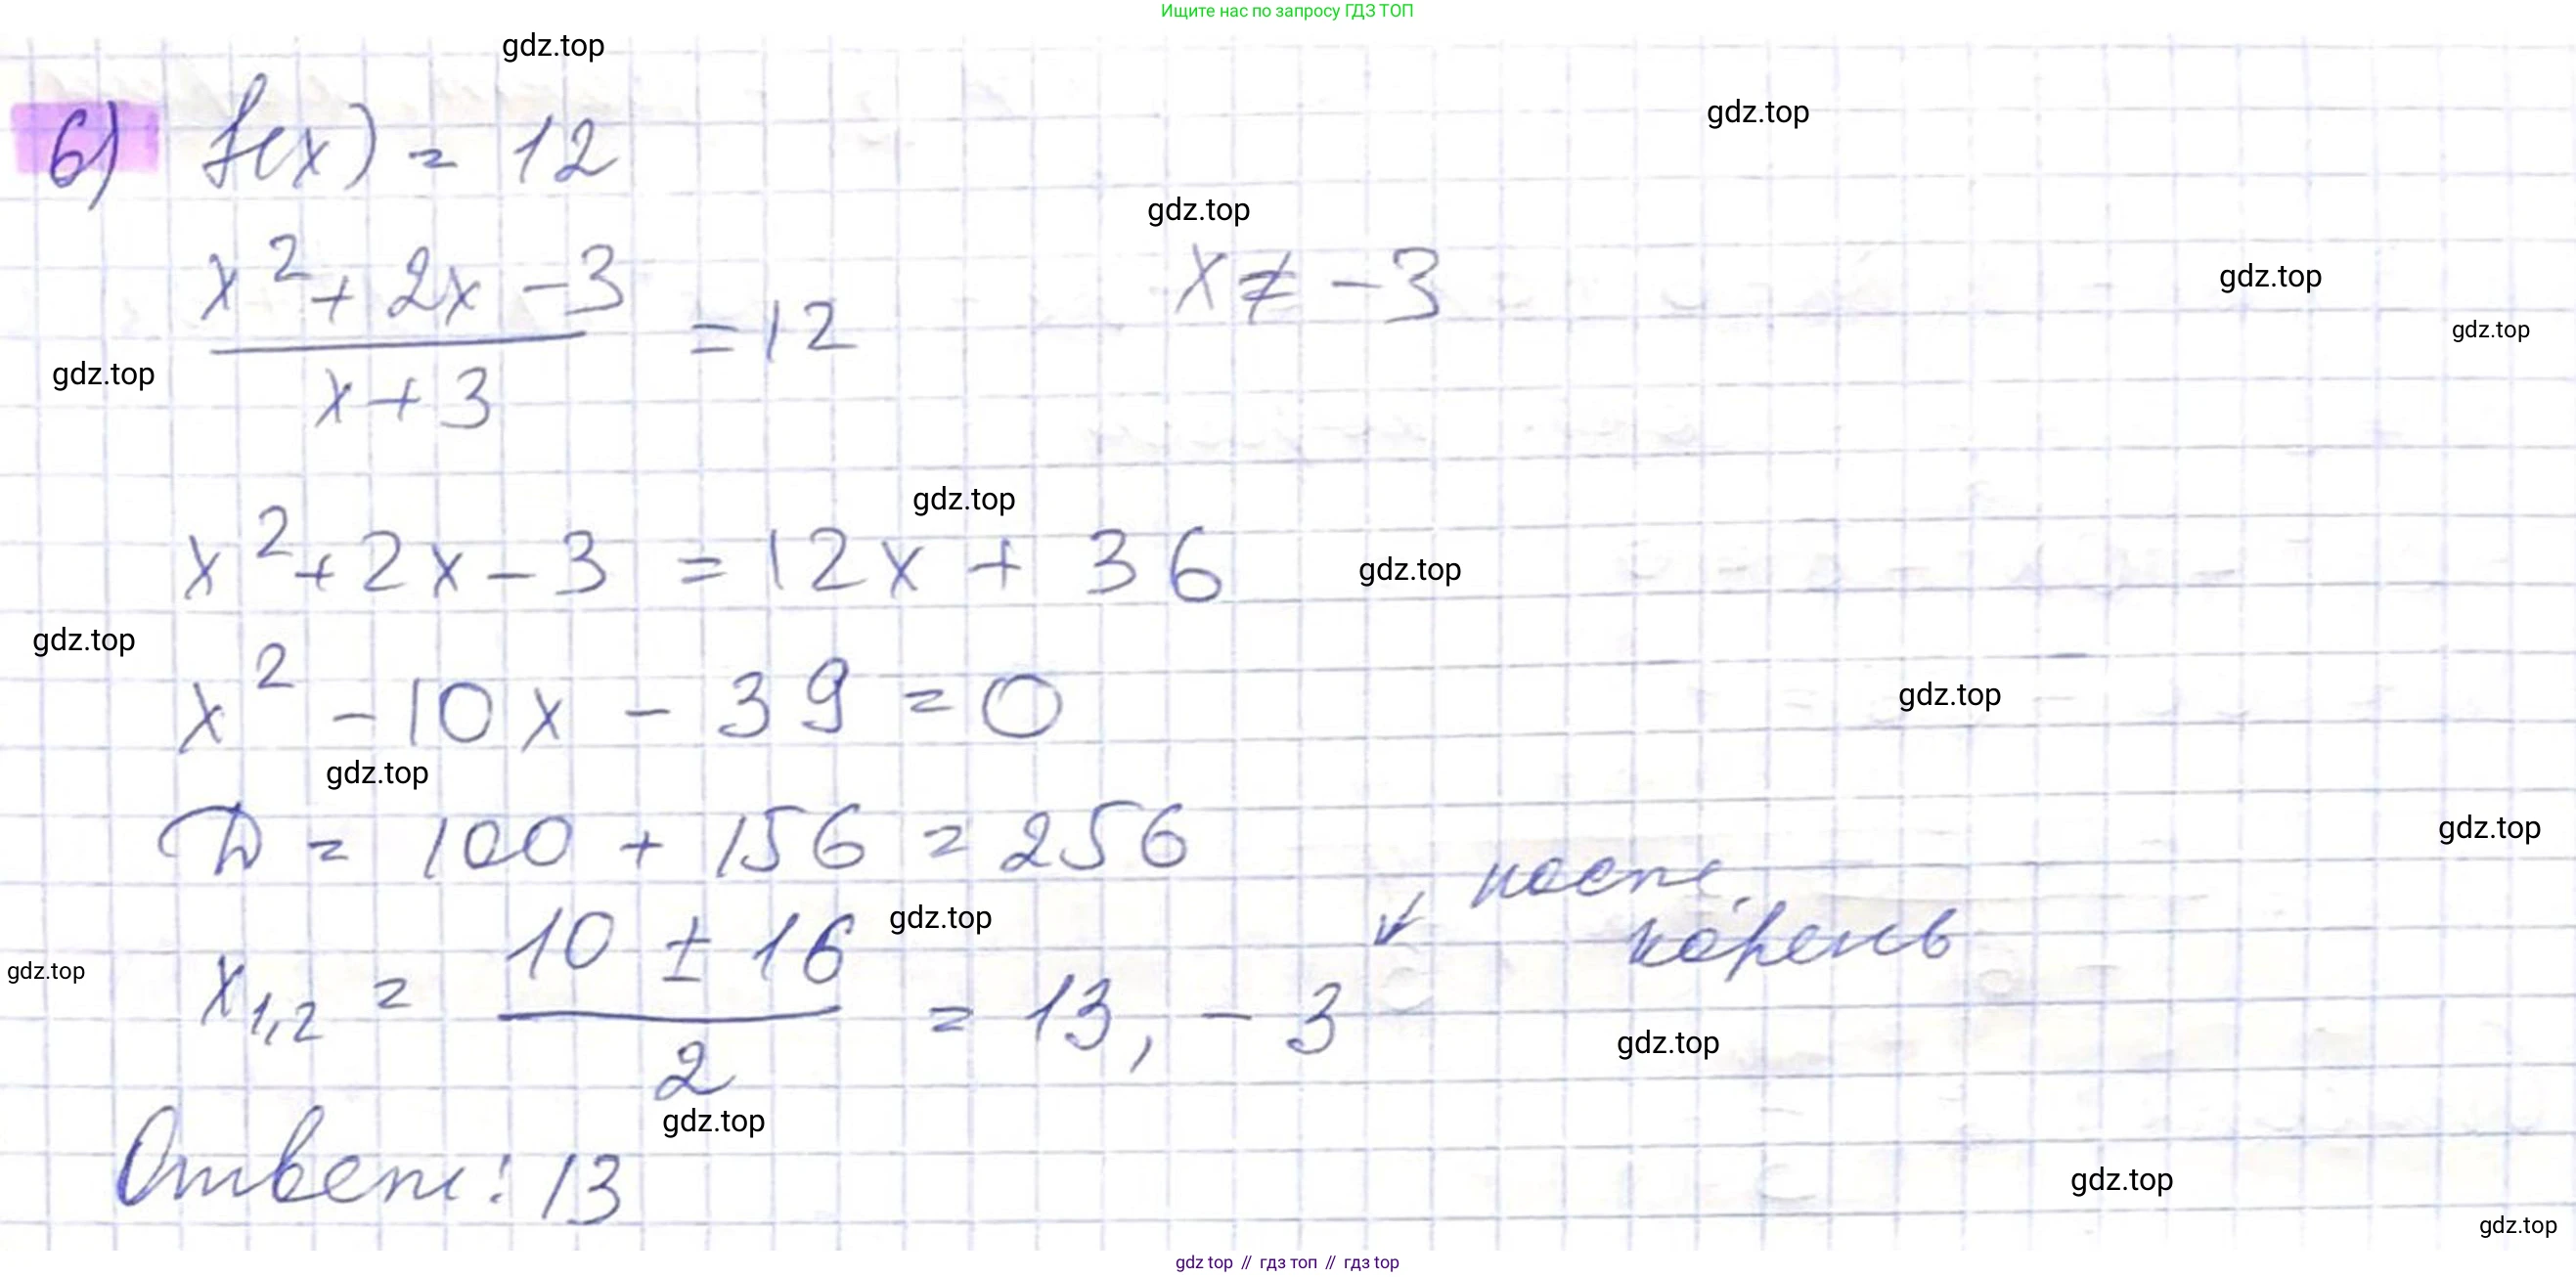 Ищите нас по запросу ГДЗ ТОП
gdz.top
б) f(x) = 12
gdz.top
gdz.top
x² + 2x - 3
x ≠ -3
gdz.top
= 12
gdz.top
gdz.top
x + 3
gdz.top
x² + 2x - 3 = 12x + 36
gdz.top
gdz.top
x² - 10x - 39 = 0
gdz.top
gdz.top
D = 100 + 156 = 256
gdz.top
пост.
корень
10 ± 16
gdz.top
gdz.top
x1,2 =
= 13, -3
gdz.top
2
gdz.top
Ответ: 13
gdz.top
gdz.top
gdz top // гдз топ // гдз top